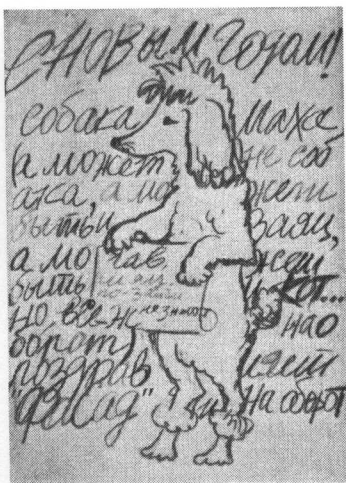 С НОВЫМ ГОДОМ!
собака Маха
(а может не соб
ака, а мо жет
быть и Заяц,
а мо жет
быть и Кот...
но все-ж нао
борот
поздрав ляет
"Фасад" наоборот